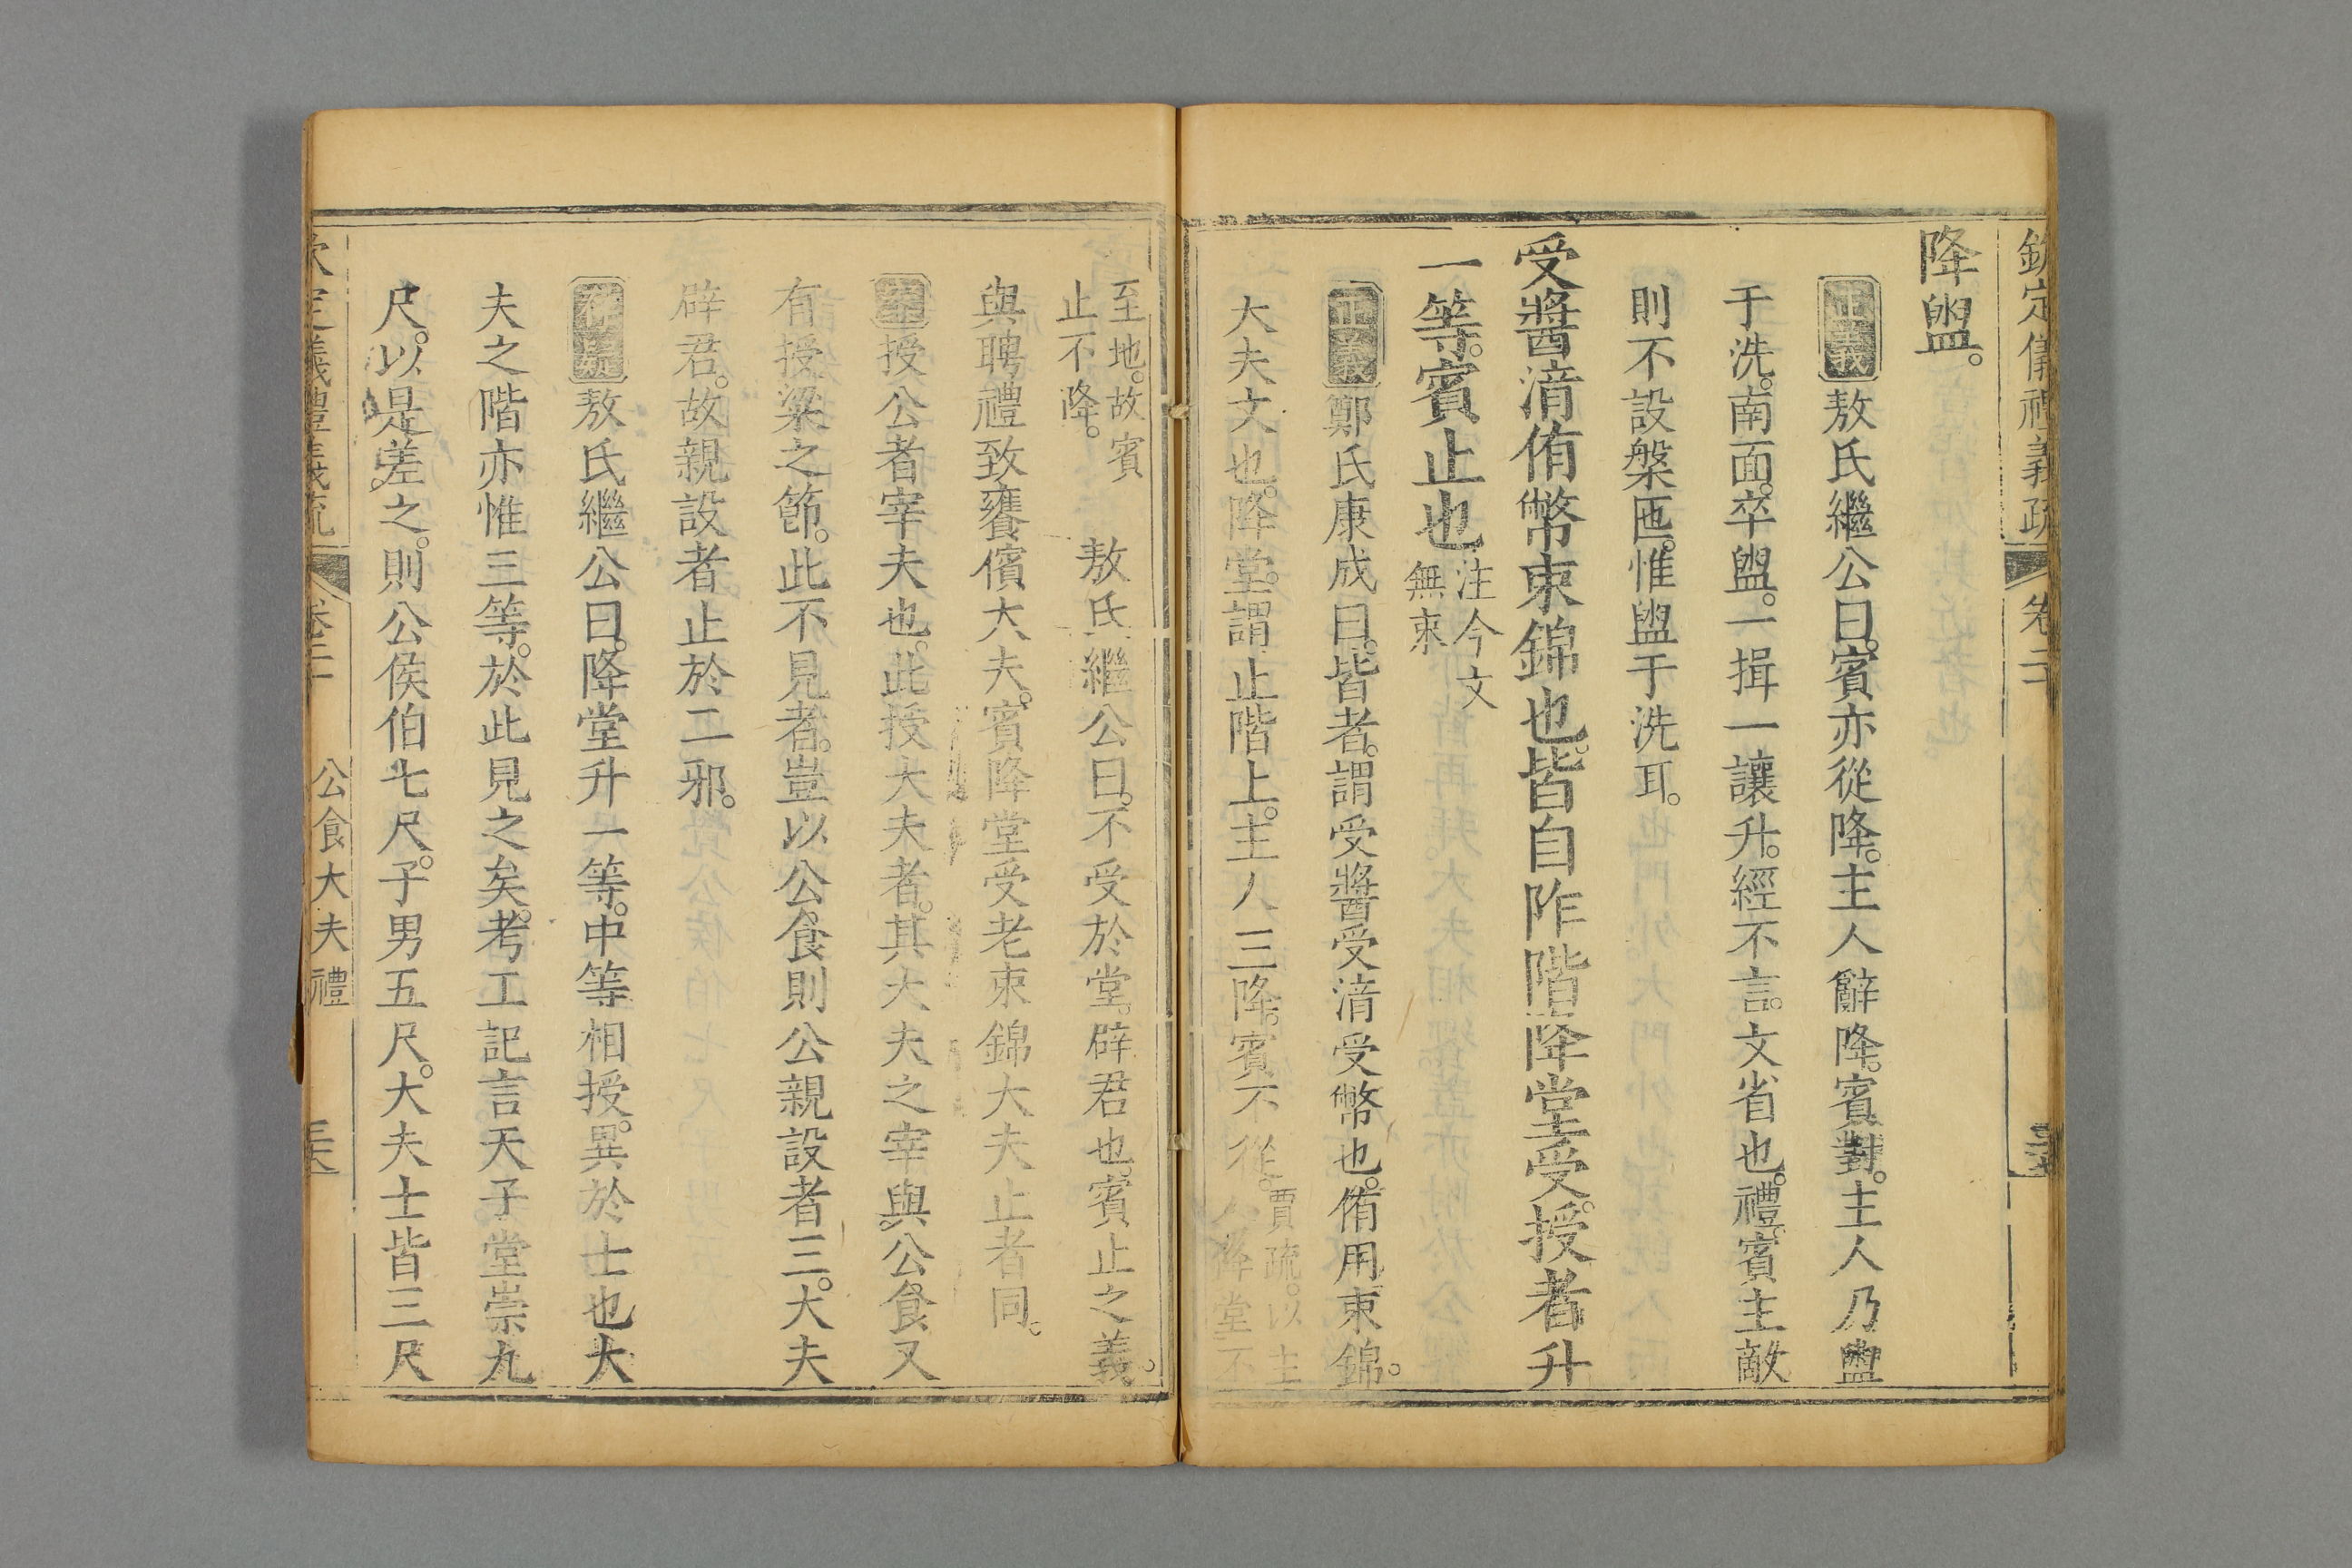 欽定儀禮義疏 卷二十
降盥。
正義敖氏繼公曰。賓亦從降。主人辭降。賓對。主人乃盥
于洗。南面。卒盥。一揖一讓升。經不言。文省也。禮。賓主敵
則不設槃匜。惟盥于洗耳。
受醬湆侑幣束錦也。皆自阼階降堂受。授者升
一等。賓止也 注今文無束
正義鄭氏康成曰。皆者。謂受醬受湆受幣也。侑用束錦。
大夫文也。降堂。謂止階上。主人三降。賓不從。賈疏。以主人降堂不
至地。故賓止不降。 敖氏繼公曰。不受於堂。辟君也。賓止之義。
與聘禮致饔儐大夫。賓降堂受老束錦大夫止者同。
案授公者宰夫也。此授大夫者。其大夫之宰與。公食又
有授粱之節。此不見者。豈以公食則公親設者三。大夫
辟君。故親設者止於二邪。
存疑敖氏繼公曰。降堂升一等。中等相授。異於士也大
夫之階亦惟三等。於此見之矣。考工記言天子堂崇九
尺。以是差之。則公侯伯七尺。子男五尺。大夫士皆三尺
欽定儀禮義疏 卷二十 公食大夫禮